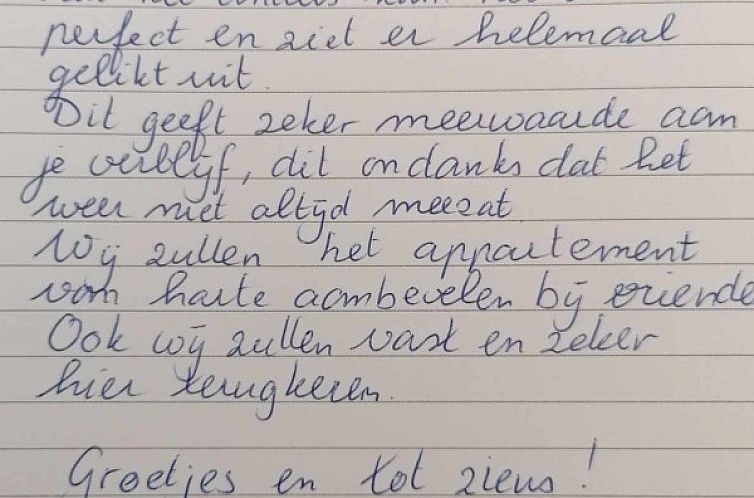 perfect en ziet er helemaal
gelikt uit.
Dit geeft zeker meerwaarde aan
je verblijf, dit ondanks dat het
weer niet altijd meezat
Wij zullen het appartement
van harte aanbevelen bij vriende
Ook wij zullen vast en zeker
hier terugkeren.
Groetjes en tot ziens!